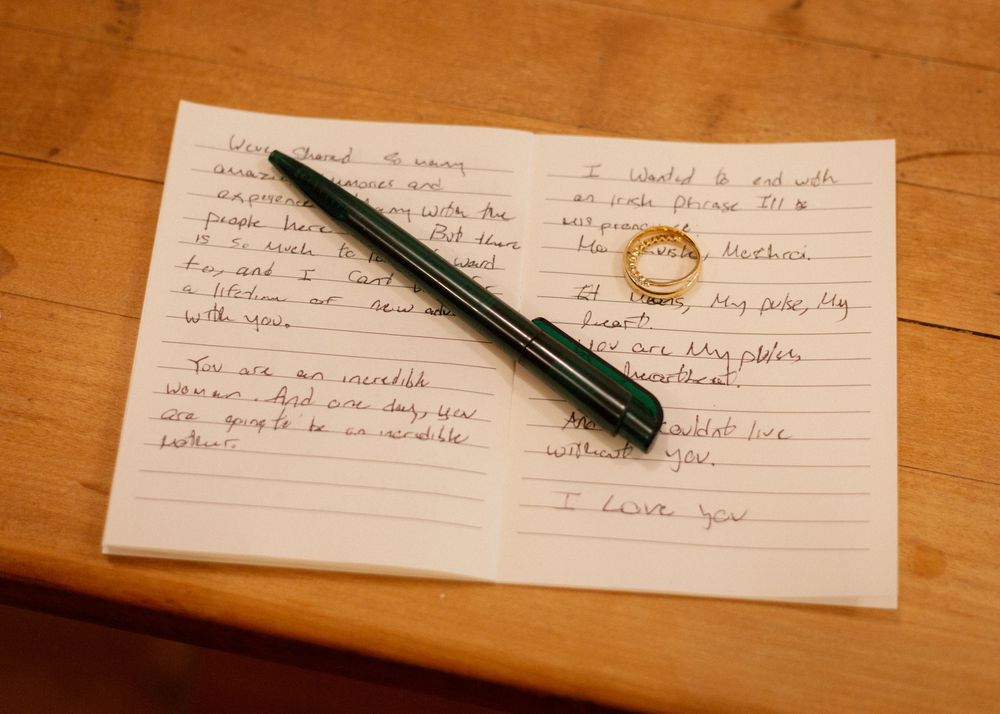 Weve shared so many
amazing memories and
experience many with the
people here But there
is so much to ward
to, and I cant
a lifetime of new adv.
with you.
You are an incredible
woman. And one day, you
are going to be an incredible
Mother.
I wanted to end with
an Irish phrase I'll
Mo , Mo Chroi.
It Means, My pulse, My
heart.
You are My pulse,
heartbeat.
And couldnt live
without you.
I Love you